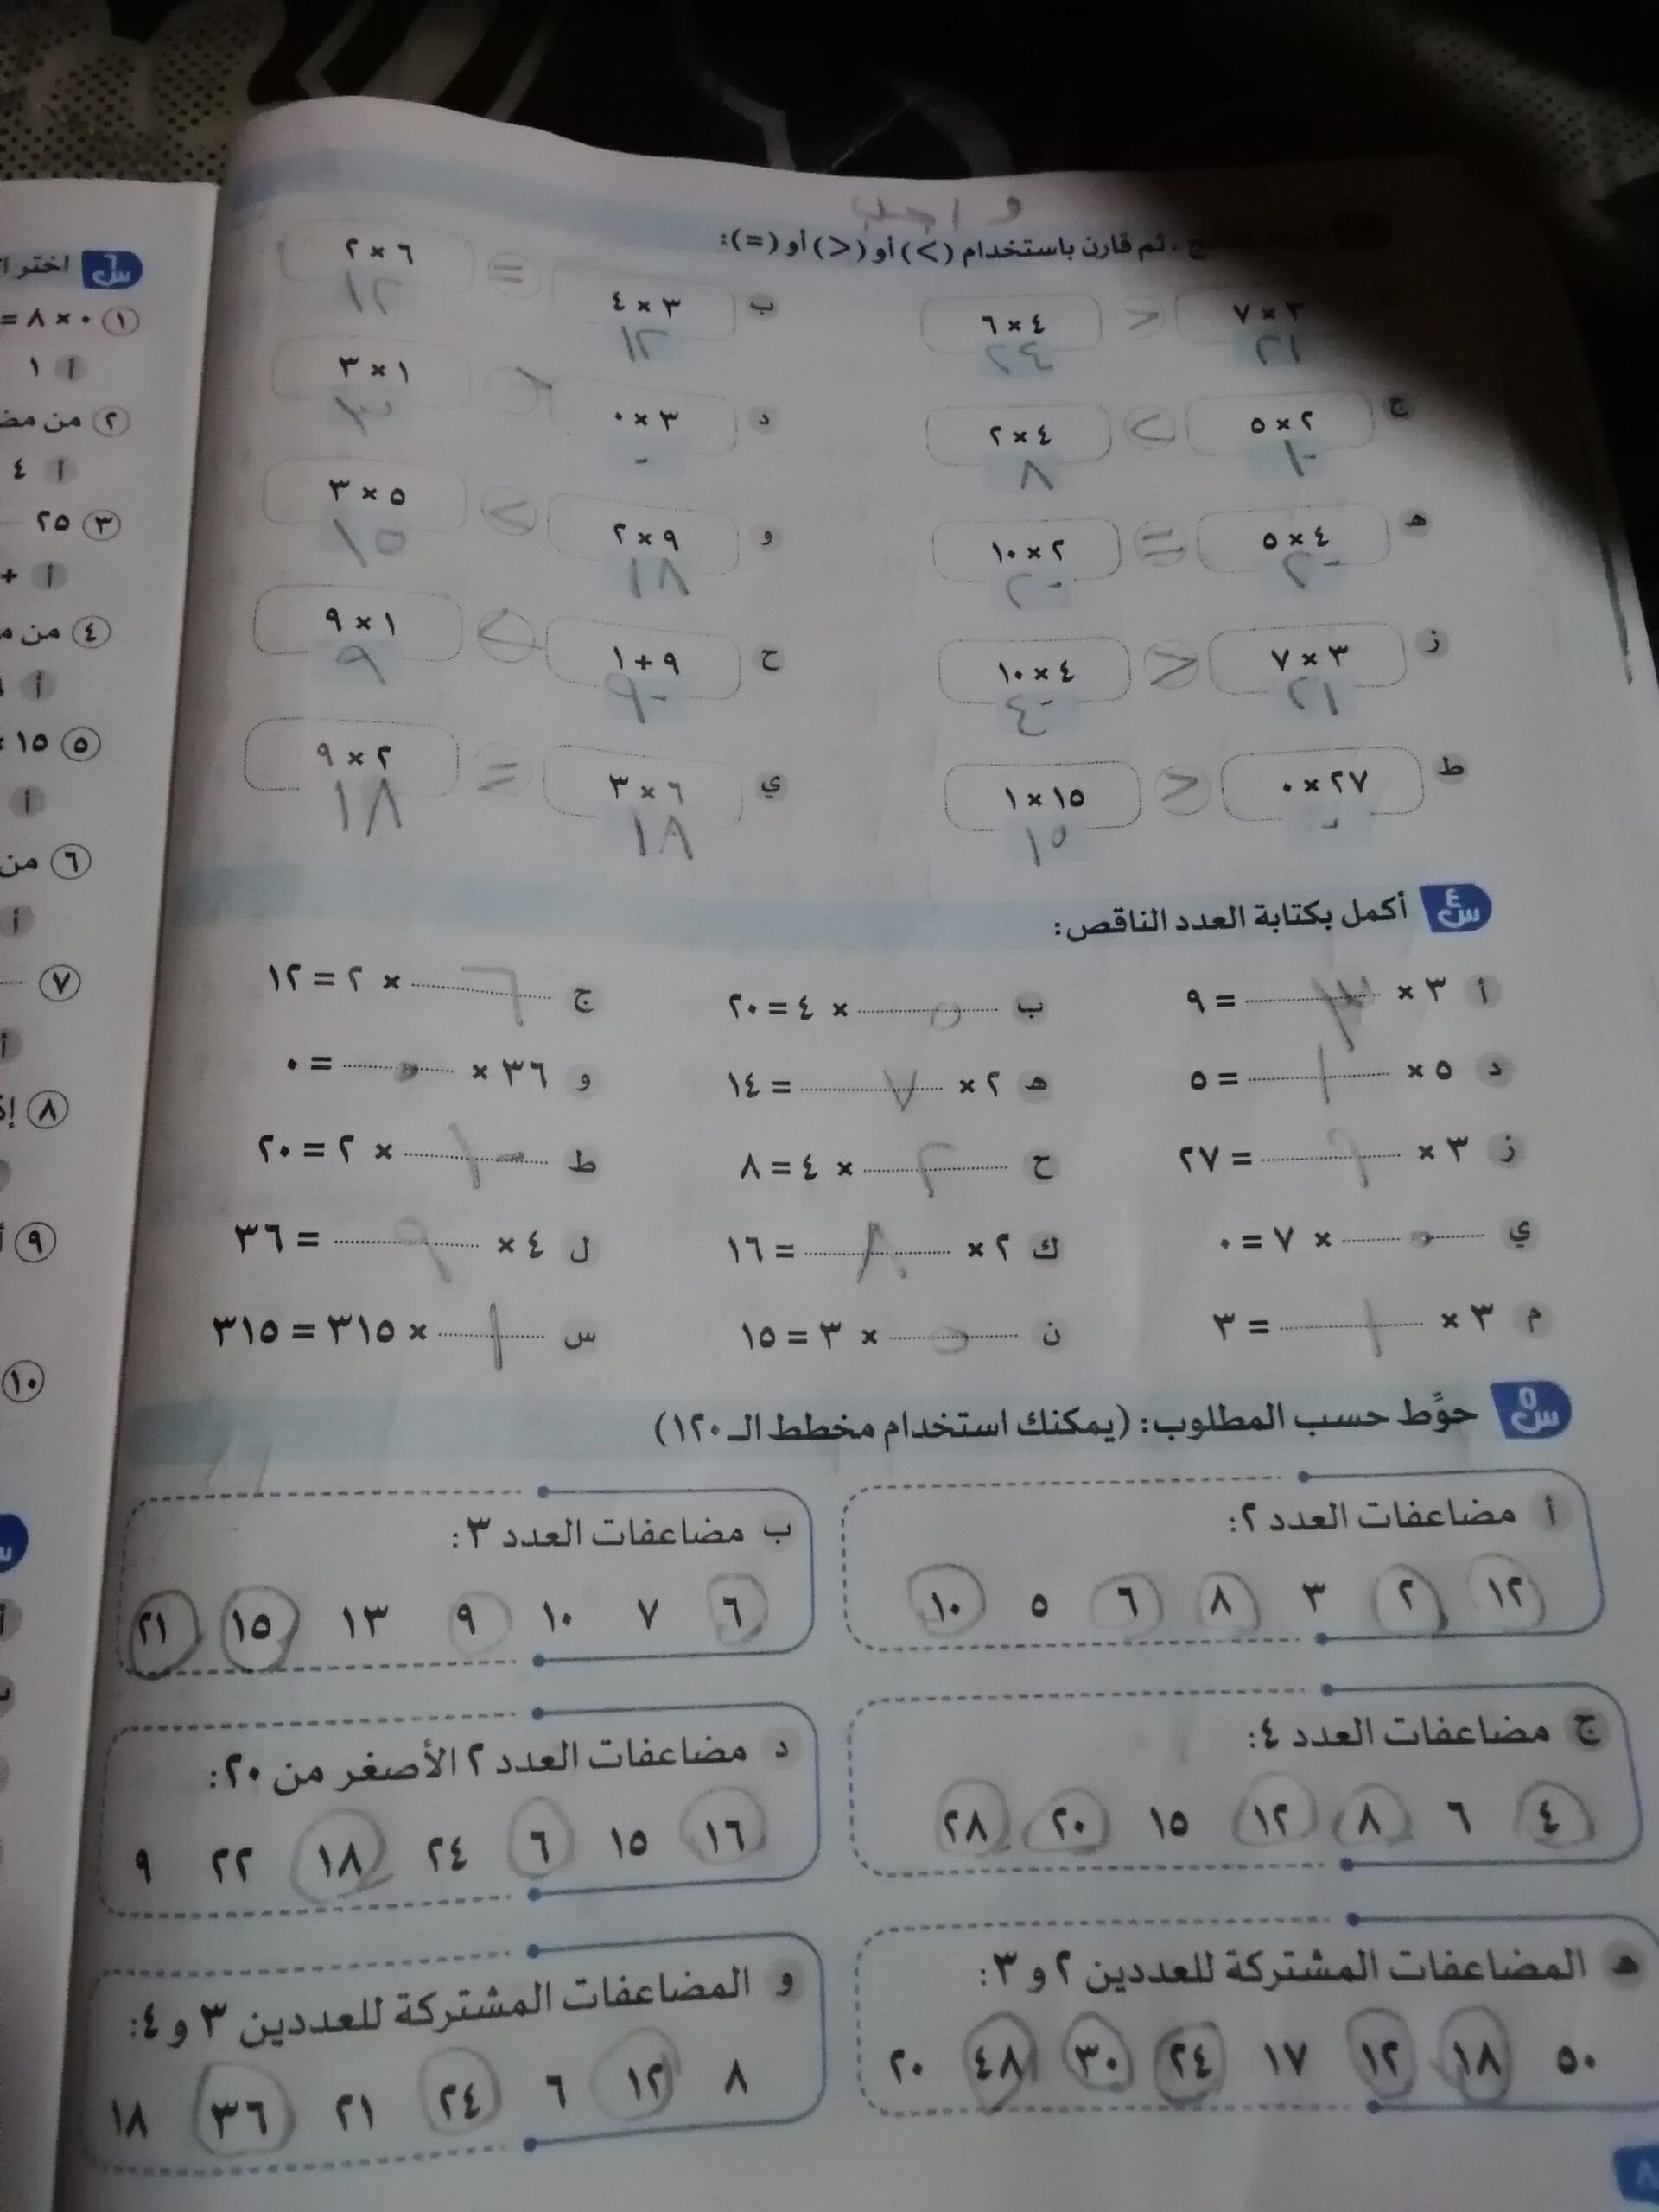 واجب
، ثم قارن باستخدام (>) أو (<) أو (=):
٣ × ٧ < ٤ × ٦ ب ٣ × ٤ = ٦ × ٢
٢١ ٢٤ ١٢ ١٢
ج ٢ × ٥ > ٤ × ٢ د ٣ × ٠ < ١ × ٣
١٠ ٨ ٠ ٣
هـ ٤ × ٥ = ٢ × ١٠ و ٩ × ٢ > ٥ × ٣
٢٠ ٢٠ ١٨ ١٥
ز ٣ × ٧ < ٤ × ١٠ ح ٩ + ١ > ١ × ٩
٢١ ٤٠ ٩
ط ٢٧ × ٠ < ١٥ × ١ ي ٦ × ٣ = ٢ × ٩
٠ ١٥ ١٨ ١٨
س٤ أكمل بكتابة العدد الناقص:
أ ٣ × ٣ = ٩ ب ٥ × ٤ = ٢٠ ج ٦ × ٢ = ١٢
د ٥ × ١ = ٥ هـ ٢ × ٧ = ١٤ و ٣٦ × ٠ = ٠
ز ٣ × ٩ = ٢٧ ح ٢ × ٤ = ٨ ط ١٠ × ٢ = ٢٠
ي ٠ × ٧ = ٠ ك ٢ × ٨ = ١٦ ل ٤ × ٩ = ٣٦
م ٣ × ١ = ٣ ن ٥ × ٣ = ١٥ س ١ × ٣١٥ = ٣١٥
س٥ حوِّط حسب المطلوب: (يمكنك استخدام مخطط الـ ١٢٠)
أ مضاعفات العدد ٢:
١٢ ٢ ٣ ٨ ٦ ٥ ١٠
ب مضاعفات العدد ٣:
٦ ٧ ١٠ ٩ ١٣ ١٥ ٢١
ج مضاعفات العدد ٤:
٤ ٦ ٨ ١٢ ١٥ ٢٠ ٢٨
د مضاعفات العدد ٢ الأصغر من ٢٠:
١٦ ١٥ ٦ ٢٤ ١٨ ٢٢ ٩
هـ المضاعفات المشتركة للعددين ٢ و ٣:
٥٠ ١٨ ١٢ ١٧ ٢٤ ٣٠ ٤٨ ٢٠
و المضاعفات المشتركة للعددين ٣ و ٤:
٨ ١٢ ٦ ٢٤ ٢١ ٣٦ ١٨
٨
س٦ اختر
١ ٠ × ٨ =
أ ١
٢ من
أ ٤
٣ ٢٥
أ +
٤ من
أ
٥ ١٥
أ
٦ من
أ
٧
أ
٨
٩
١٠